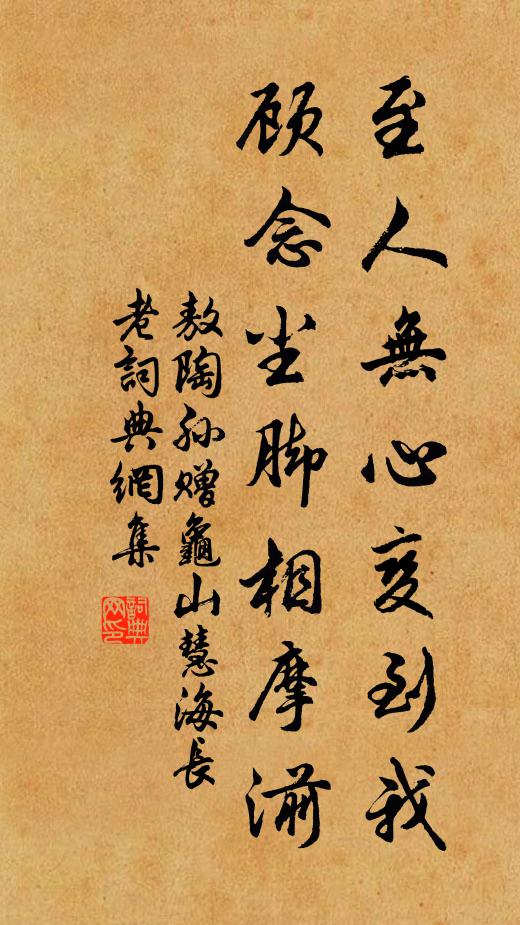 至人無心变到我
顾念坐脚相摩湔
敖陶孙赠龜山慧海長
老詞典網集
詞典
网印